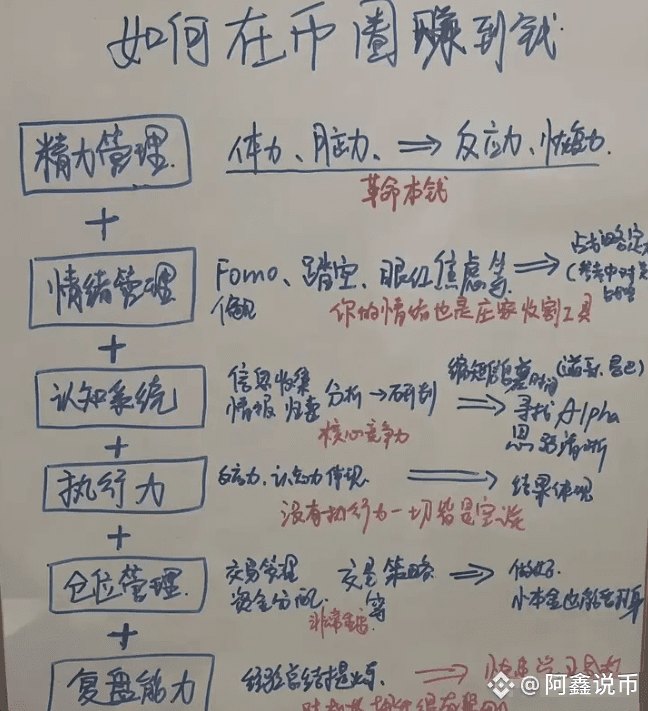 如何在币圈赚到钱
精力管理. 体力、脑力、⇒ 反应力、恢复力
革命本钱
+
情绪管理 Fomo、踏空、眼红焦虑等 ⇒
偏见
你的情绪也是庄家收割工具
+
认知系统 信息收集 分析→研判 ⇒ 缩短
情报 归纳 寻找Alpha
核心竞争力 思路清晰
+
执行力 反应力、认知力体现 ⇒ 结果体现
没有执行力一切皆是空谈
+
仓位管理. 交易管理 交易策略 ⇒ 做好
资金分配 等 小本金也能
非常重要
+
复盘能力 经验总结提炼 ⇒
@阿鑫说币